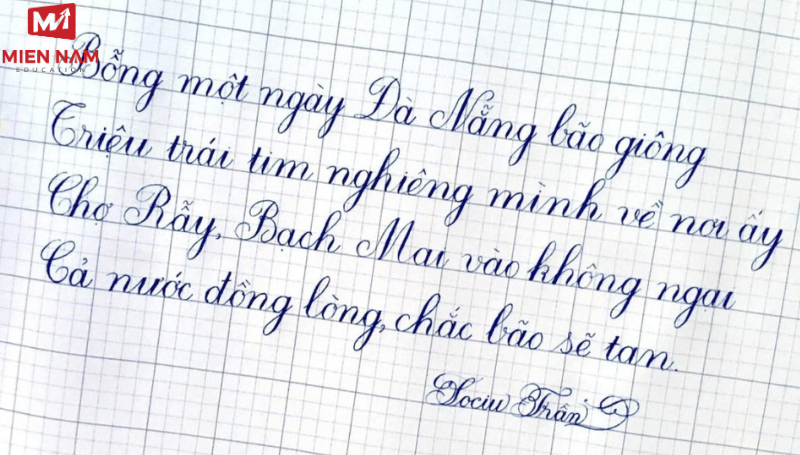 MIEN NAM
EDUCATION
Bỗng một ngày Đà Nẵng bão giông
Triệu trái tim nghiêng mình về nơi ấy
Chợ Rẫy, Bạch Mai vào không ngại
Cả nước đồng lòng, chắc bão sẽ tan.
Sociu Trần